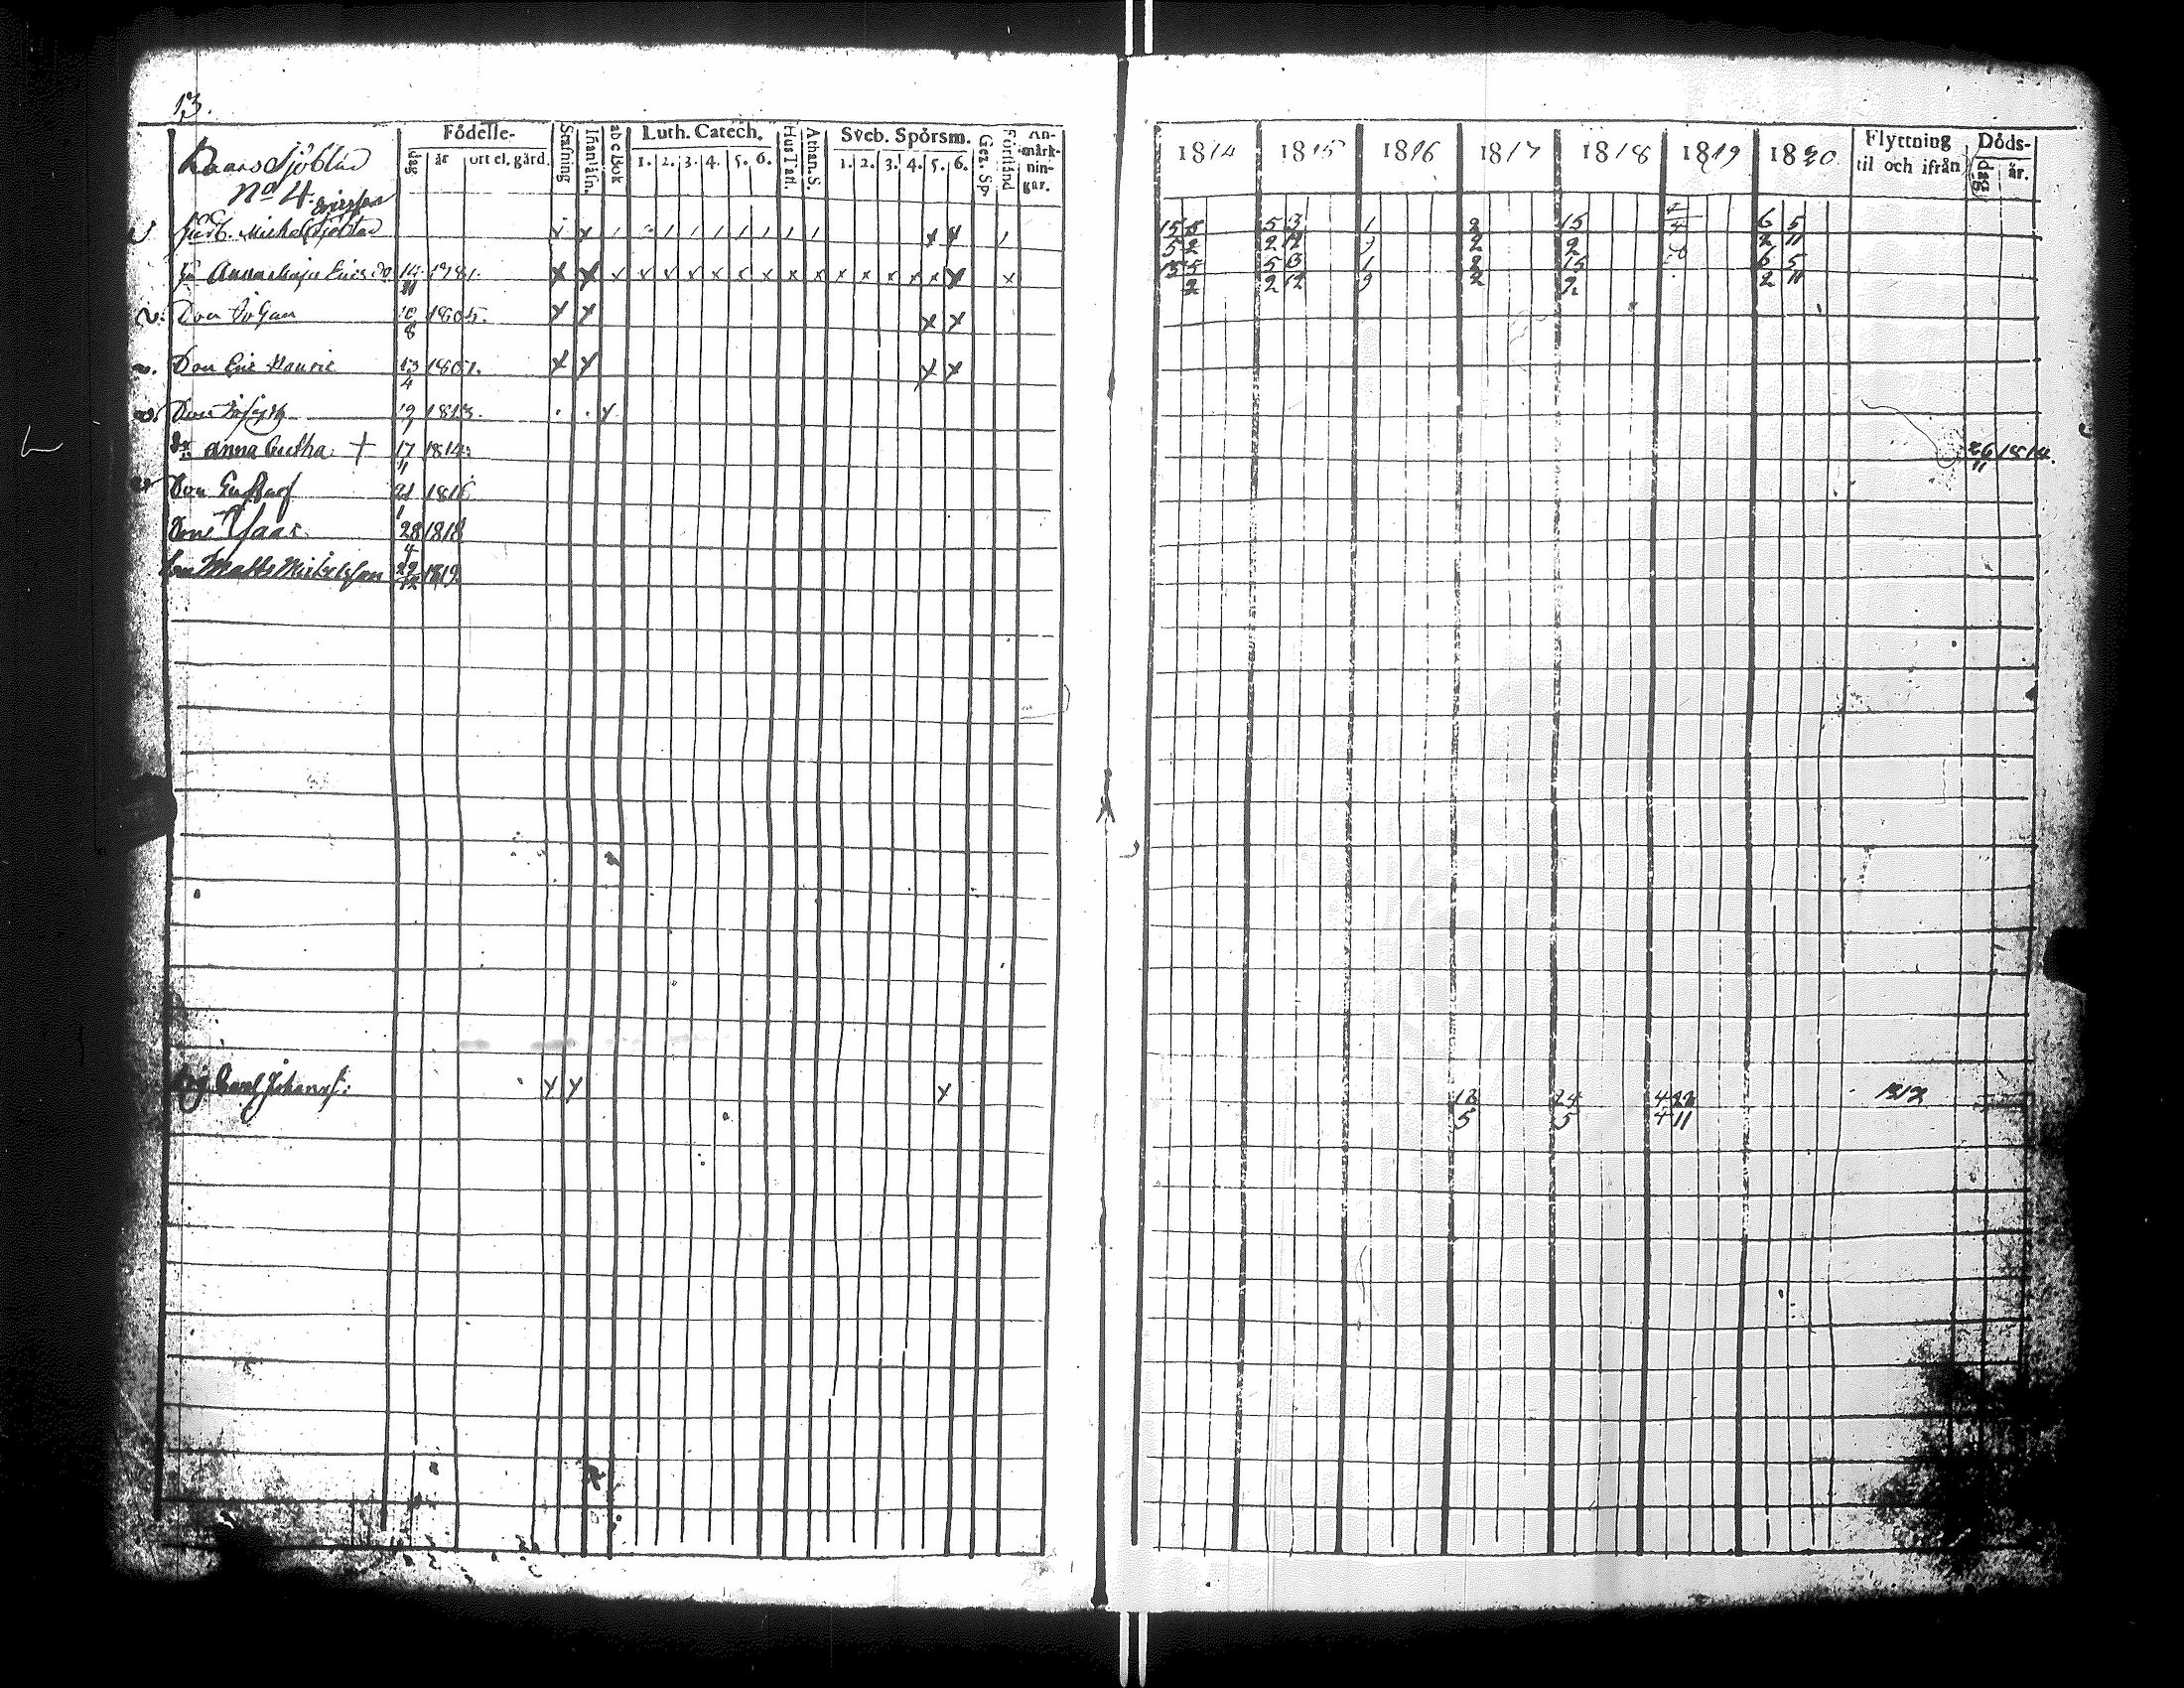 13.
Födelse-
dag år ort el. gård.
Stafning
Innanläsn.
abcBok
Luth. Catech.
1. 2. 3. 4. 5. 6.
HusTafl.
Athan. S.
Sveb. Spörsm.
1. 2. 3. 4. 5. 6.
Gez. Sp
Förstånd
An-
märk-
nin-
gar.
1814 1815 1816 1817 1818 1819 1820
Flyttning
til och ifrån
Döds-
dag år.
Sjöblad
No 4.
Ericsson
Michel Sjöblad
15 5 5 3 1 2 15 6 5
5 2 2 12 9 2 2 2 11
Anna Caja Erics do 14 1781.
11
15 5 5 3 1 2 15 6 5
2 2 12 9 2 2 2 11
Son Johan 10 1805.
8
Son Eric Henric 13 1807.
4
Son Joseph 19 1813.
Anna Greta † 17 1814.
11
26 1814.
11
Son Gustaf 21 1816
1
Son Isaac 28 1818
4
Son Matts Mickelsson 29 1819
12
Johansf:
18 24 4 22 1817
5 5 4 11